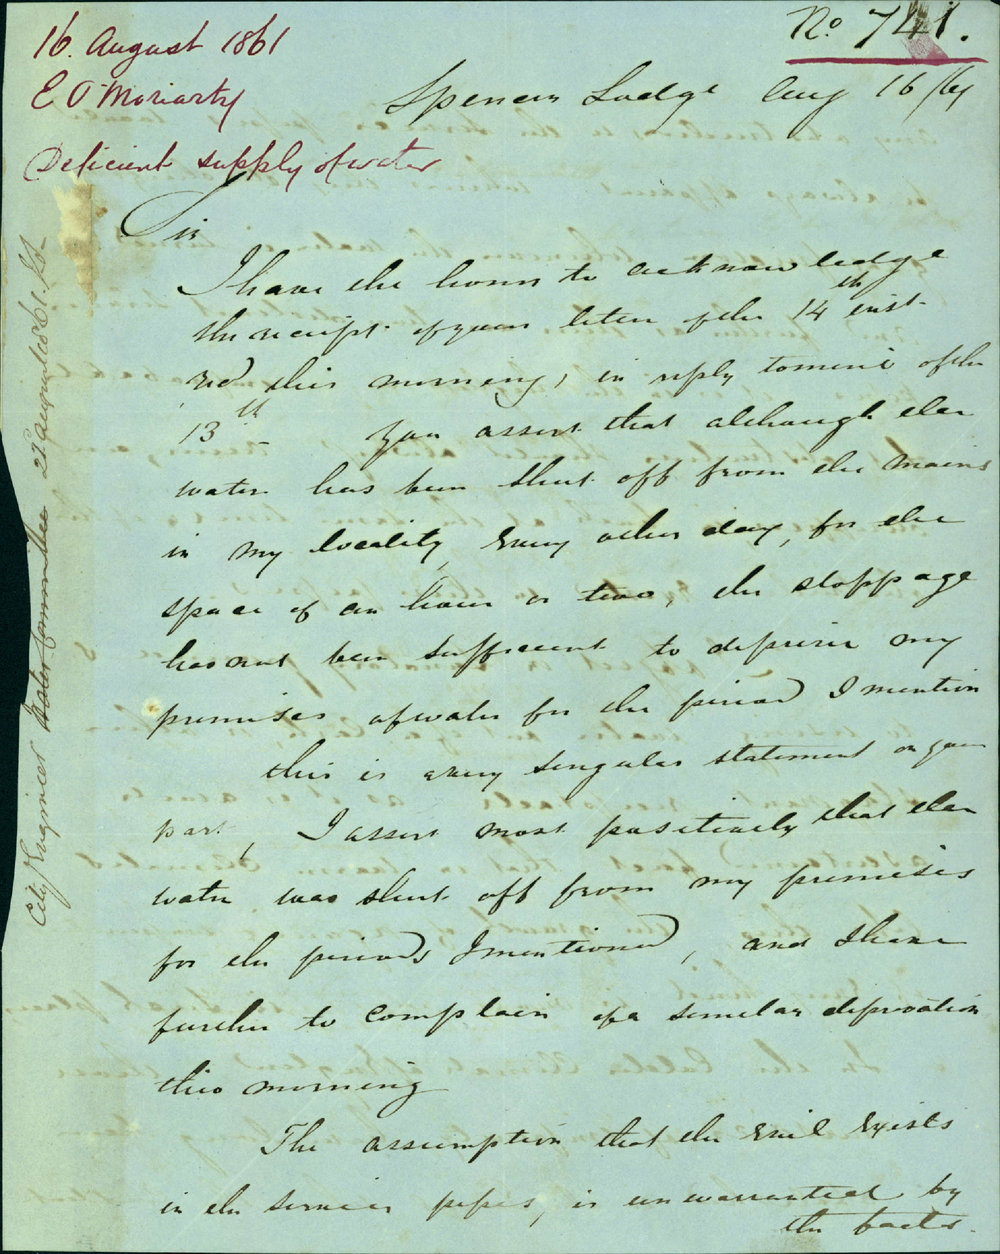 No. 741.
16 August 1861
E O Moriarty
Deficient supply of water
Spencer Lodge Aug 16/61
Sir
I have the honor to acknowledge
the receipt of your letter of the 14th inst
recd this morning, in reply to mine of the
13th You assert that although the
water has been shut off from the mains
in my locality, every other day, for the
space of an hour or two, the stoppage
has not been sufficient to deprive my
premises of water for the period I mention
this is a very singular statement on your
part, I assert most positively that the
water was shut off from my premises
for the periods I mentioned, and I have
further to complain of a similar deprivation
this morning
The assumption that the evil exists
in the service pipes, is unwarranted by
the facts.
City Engineer Water Committee 22 August 1861.